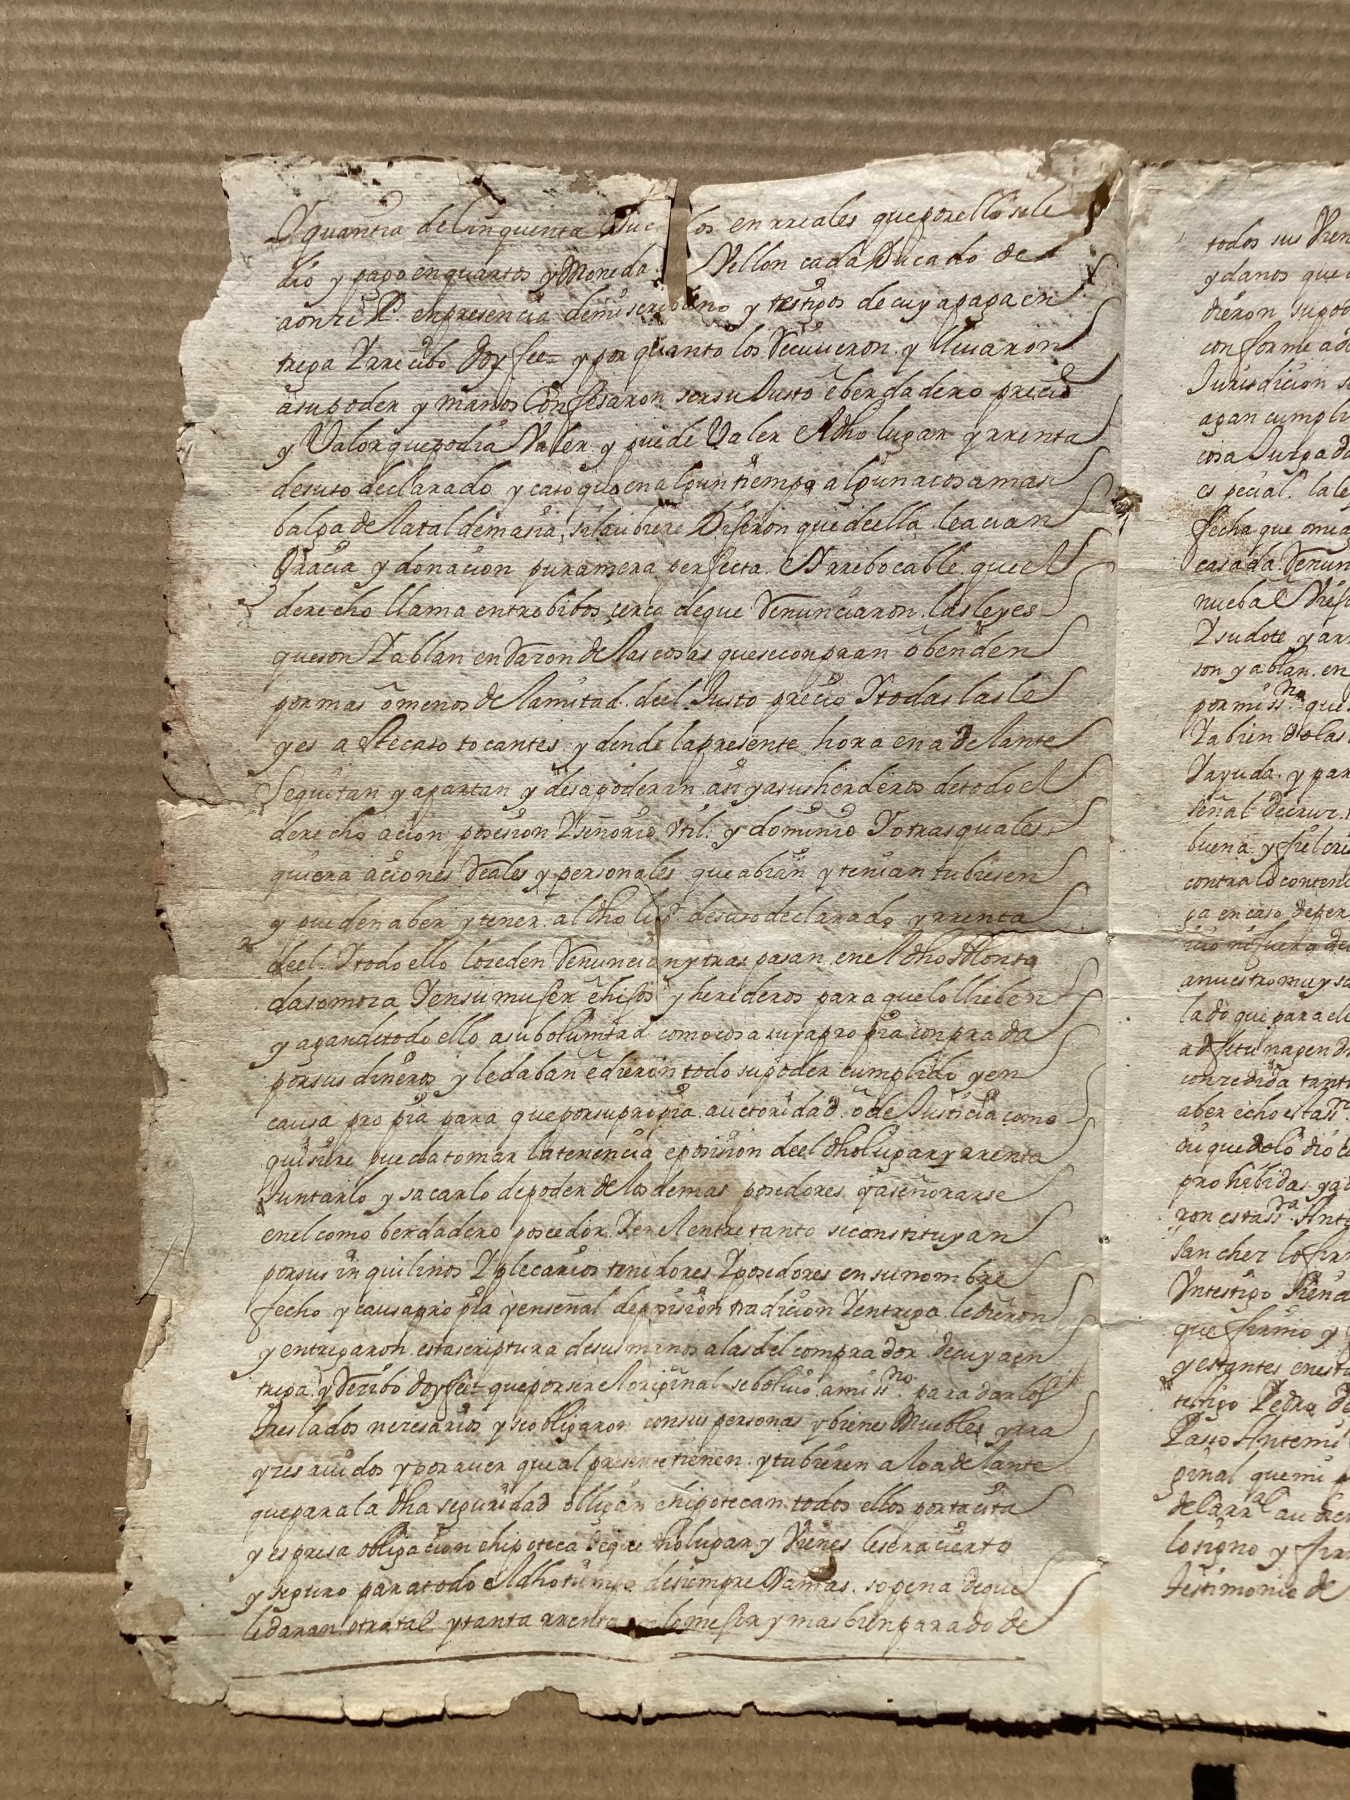 Y quantia de cinquenta Duca los en rreales que por ello se le
dio y pago en quartos y Moneda Vellon cada Ducado de
aonze Rs. en presencia de mi scribano y testigos de cuya paga en
trega Y rrecibo doy fee= y por quanto los Recivieron y llevaron
a su poder y manos Confesaron ser su Justo e berdadero precio
y Valor que podia Valer y puede Valer el dho lugar y rrenta
desuso declarado y caso que en algun tiempo alguna cosa mas
balga de la tal demasia, si la ubiere Dijeron que de ella le acian
Gracia y donacion pura mera perfecta Yrrebocable que el
derecho llama entre bibos cerca de que Renunciaron las leyes
que son Y ablan en Razon de las cosas que se conpran o benden
por mas o menos de la mitad deel Justo precio Y todas las le
yes a este caso tocantes y dende la presente hora en adelante
se quitan y apartan y desapoderan asi y a sus herderos de todo el
derecho acion posesion Y señorio Util y dominio Y otras quales
quiera aciones Reales y personales que abian y tenian tubiesen
y pueden aber y tener al dho lugr. desuso declarado y rrenta
deel Y todo ello lo ceden Renuncian y traspasan en el dho Alonso
da somoza Y en su muger e hijos y herederos para que lo lleben
y agan de todo ello a su boluntad como cosa suya propia conprada
por sus dineros y le daban e dieron todo su poder cumplido y en
causa propia para que por su propia auctoridad o de Justicia como
quisiere pueda tomar la tenencia e posision deel dho lugar y rrenta
Juntarlo y sacarlo de poder de los demas posedores y aseñorarse
en el como berdadero poseedor Y en el entre tanto se constituyan
por sus inquilinos Y plecarios tenedores Y posedores en su nombre
fecho y causa propia y en señal de posision tradicion Y entrega le dieron
y entregaron esta scriptura de sus manos a las del comprador de cuya en
trega y Recibo doy fee= que por ser el original se bolvio a mi ssno. para dar los
treslados necesarios y se obligaron con sus personas y bienes Muebles y rra
yzes avidos y por aver que al presente tienen y tubieren a lo adelante
que para la dha seguridad obligan e hipotecan todos ellos por tacita
y espresa obligacion e hipoteca de que dho lugar y Vienes les era cierto
y seguro para todo el dho tiempo de siempre Jamas so pena de que
le daran otra tal y tanta rrenta en lo mejor y mas bien parado de
todos sus Vien
y daños que
dieron su pode
conforme a de
Jurisdicion s
agan cumpli
cosa Juzgada
especial la le
fecha que
casada Renun
nueba
Y su dote y arr
son y ablan en
por mi ssno. que
Y ayuda y par
señal de cruz
buena y fiel
contra lo conteni
ga en caso de per
a nuestro muy sa
lado que para el
concedida tant
aber echo esta ssra.
prohibida y a
ron esta ssra. Anto
Sanchez lo fir
Y testigo
que firmo y
y estantes en esta
testigo Pedro de
Paso Ante mi
ginal que mi p
de la rrl. audien
lo signo y fir
testimonio de